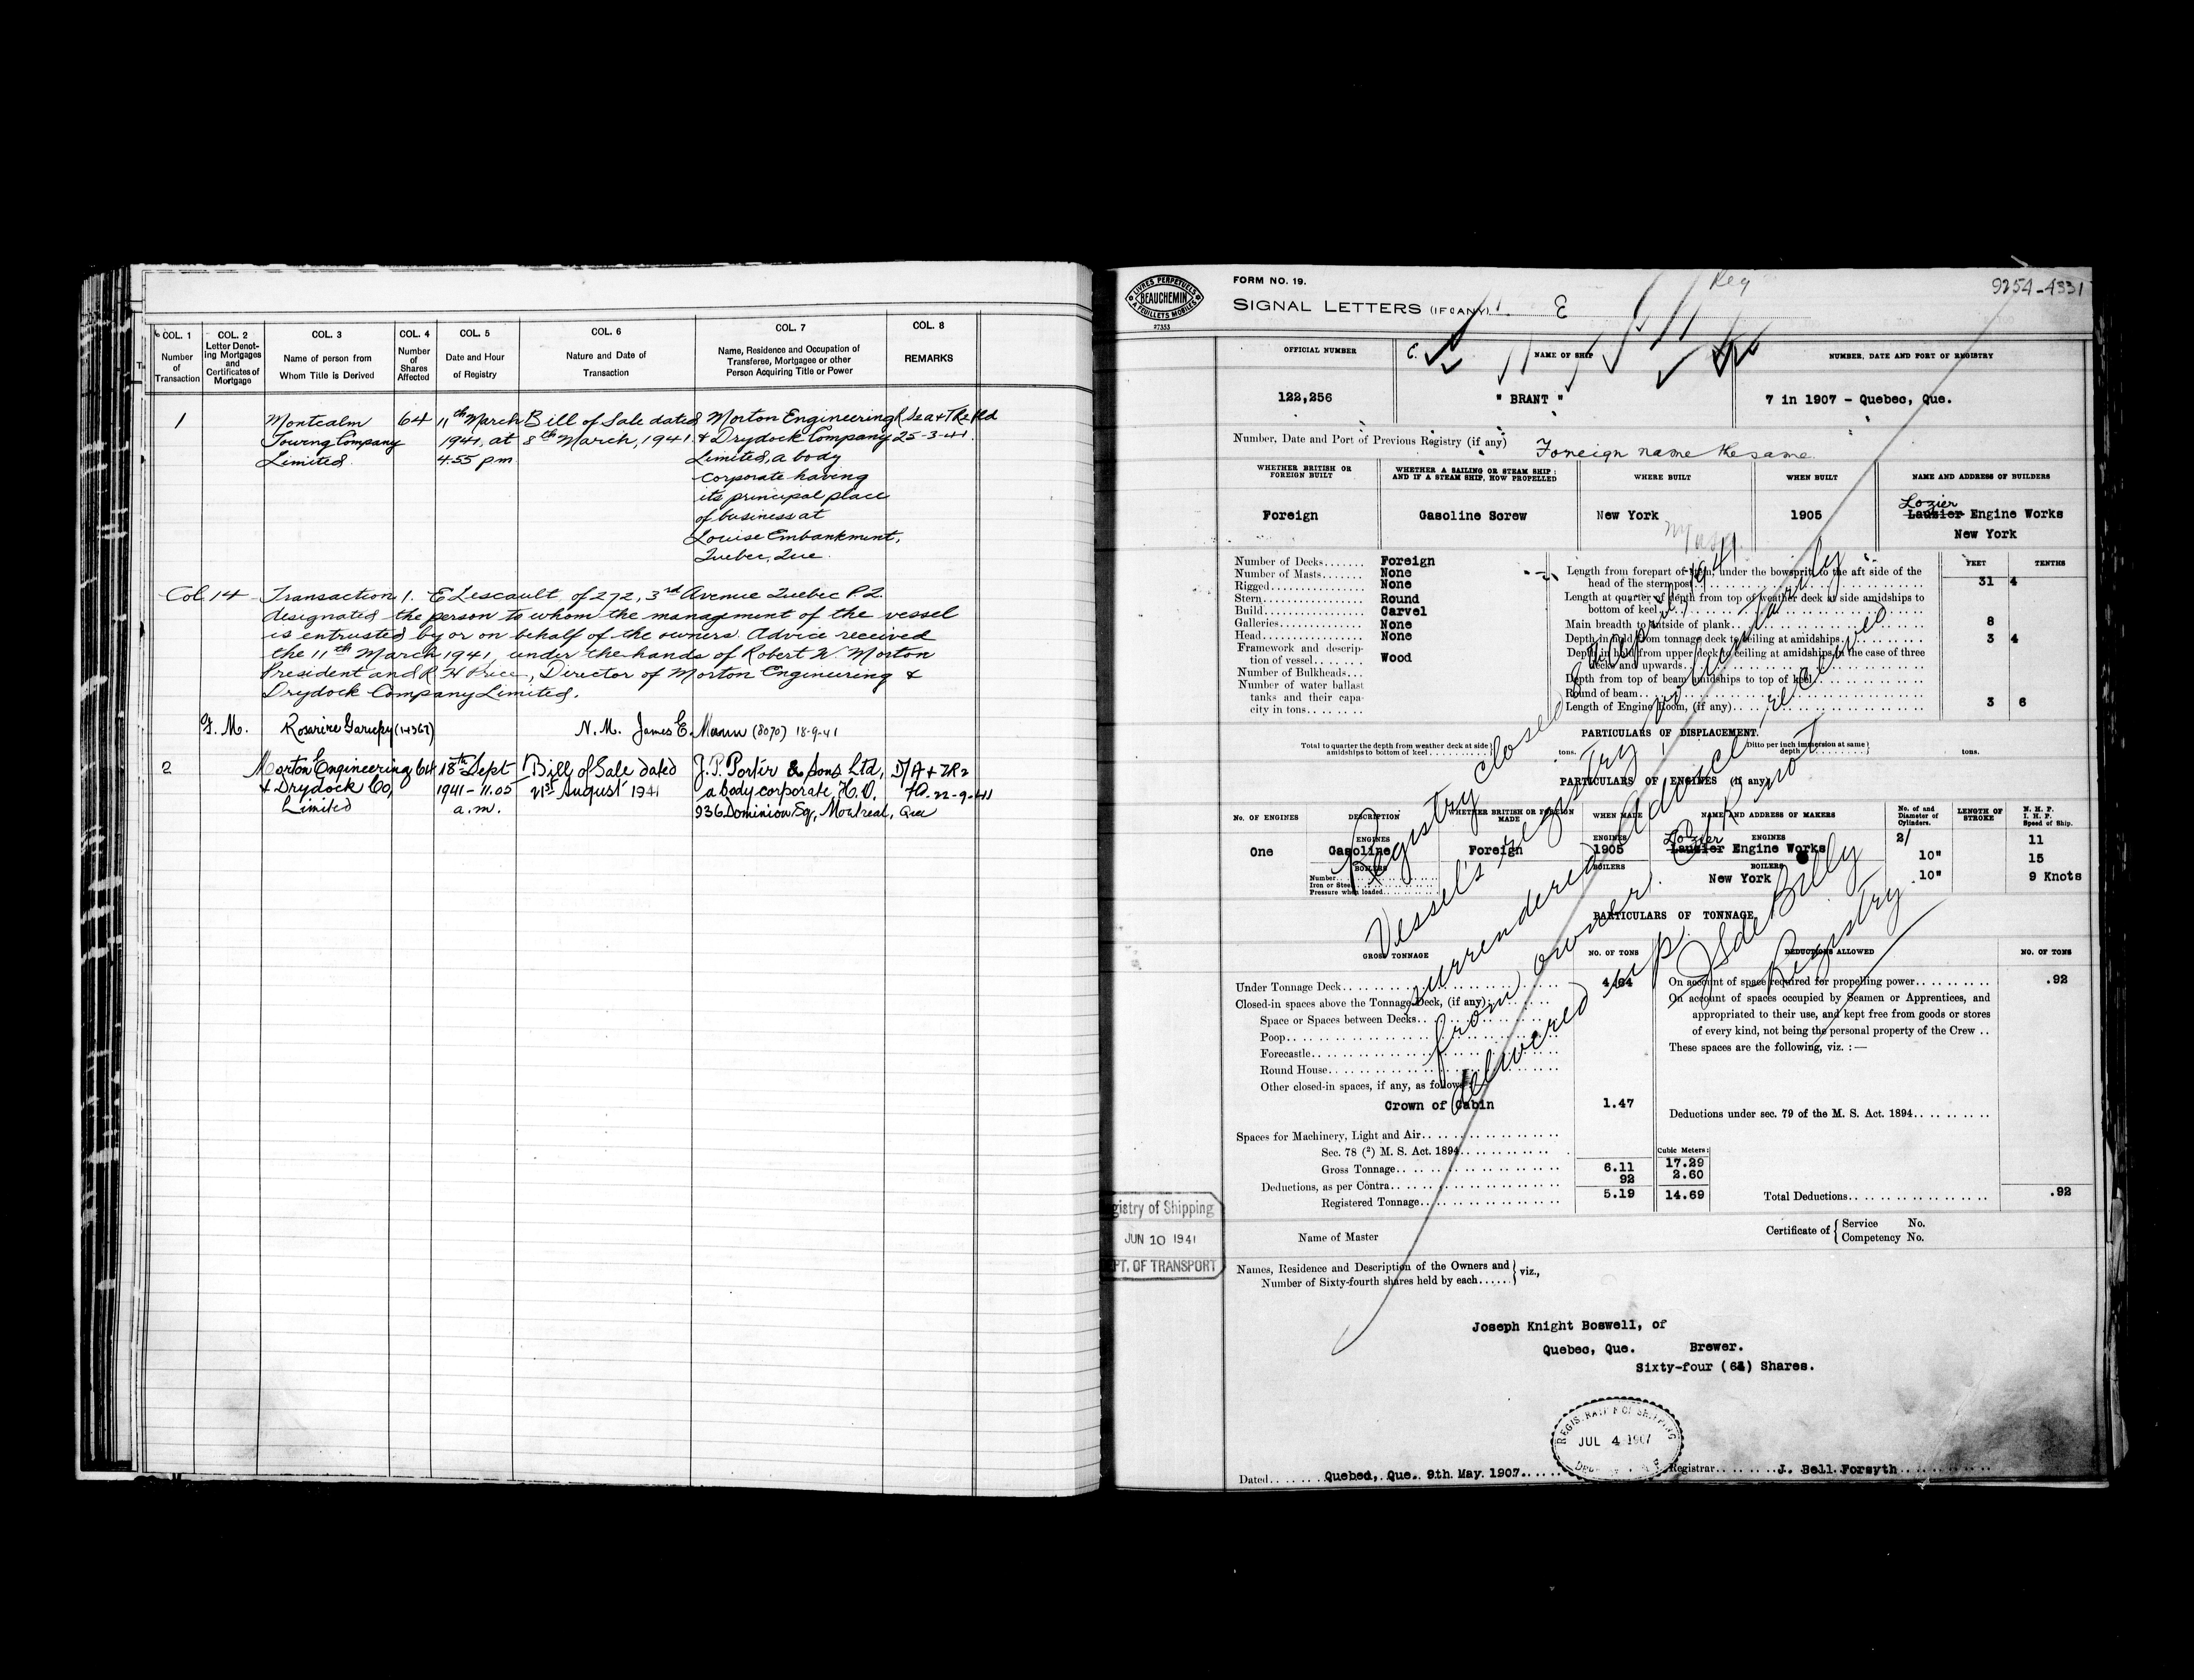 COL. 1
Number
of
Transaction
COL. 2
Letter Denot-
ing Mortgages
and
Certificates of
Mortgage
COL. 3
Name of person from
Whom Title is Derived
COL. 4
Number
of
Shares
Affected
COL. 5
Date and Hour
of Registry
COL. 6
Nature and Date of
Transaction
COL. 7
Name, Residence and Occupation of
Transferee, Mortgagee or other
Person Acquiring Title or Power
COL. 8
REMARKS
1
Montcalm
Towing Company
Limited.
64
11th March
1941, at
4.55 pm
Bill of Sale dated
8th March, 1941.
Morton Engineering
& Drydock Company
Limited, a body
corporate having
its principal place
of business at
Louise Embankment,
Quebec, Que.
25-3-41.
Col. 14 Transaction 1. E Lescault of 272, 3rd Avenue Quebec P.Q.
designated the person to whom the management of the vessel
is entrusted by or on behalf of the owners. Advice received
the 11th March 1941, under the hands of Robert W. Morton
President and R. H Price, Director of Morton Engineering &
Drydock Company Limited.
F. M. Rosarire Gariepy (14367) N. M. James E. Mann (8070) 18-9-41
2
Morton Engineering
& Drydock Co,
Limited
64
18th Sept
1941 - 11.05
a.m.
Bill of Sale dated
21st August 1941
J. P. Porter & Sons Ltd,
a body corporate, H.O.
936 Dominion Sq, Montreal, Que
22-9-41
LIVRES PERPETUELS
BEAUCHEMIN
A FEUILLETS MOBILES
27353
FORM NO. 19.
Reg
9254-4331
SIGNAL LETTERS (IF ANY)
E
OFFICIAL NUMBER
NAME OF SHIP
NUMBER, DATE AND PORT OF REGISTRY
122,256
" BRANT "
7 in 1907 - Quebec, Que.
Number, Date and Port of Previous Registry (if any)
Foreign name the same.
WHETHER BRITISH OR
FOREIGN BUILT
WHETHER A SAILING OR STEAM SHIP;
AND IF A STEAM SHIP, HOW PROPELLED
WHERE BUILT
WHEN BUILT
NAME AND ADDRESS OF BUILDERS
Foreign
Gasoline Screw
New York
1905
Lozier
Lauzier Engine Works
New York
Number of Decks....... Foreign
Number of Masts....... None
Rigged................ None
Stern................. Round
Build................. Carvel
Galleries............. None
Head.................. None
Framework and descrip-
tion of vessel....... Wood
Number of Bulkheads...
Number of water ballast
tanks and their capa-
city in tons........
FEET TENTHS
Length from forepart of stem, under the bowsprit to the aft side of the
head of the sternpost 31 4
Length at quarter of depth from top of weather deck at side amidships to
bottom of keel
Main breadth to outside of plank 8
Depth in hold from tonnage deck to ceiling at amidships 3 4
Depth in hold from upper deck to ceiling at amidships in the case of three
decks and upwards
Depth from top of beam amidships to top of keel
Round of beam
Length of Engine Room, (if any) 3 6
PARTICULARS OF DISPLACEMENT.
Total to quarter the depth from weather deck at side
amidships to bottom of keel
tons.
Ditto per inch immersion at same
depth
tons.
PARTICULARS OF ENGINES (if any)
No. OF ENGINES
DESCRIPTION
WHETHER BRITISH OR FOREIGN
MADE
WHEN MADE
NAME AND ADDRESS OF MAKERS
No. of and
Diameter of
Cylinders.
LENGTH OF
STROKE
N. H. P.
I. H. P.
Speed of Ship.
One
ENGINES
Gasoline
BOILERS
Number
Iron or Steel
Pressure when loaded
Foreign
ENGINES
1905
BOILERS
ENGINES
Lozier
Lauzier Engine Works
BOILERS
New York
2/
10"
10"
11
15
9 Knots
PARTICULARS OF TONNAGE.
GROSS TONNAGE
NO. OF TONS
DEDUCTIONS ALLOWED
NO. OF TONS
Under Tonnage Deck 4.64
Closed-in spaces above the Tonnage Deck, (if any):
Space or Spaces between Decks
Poop
Forecastle
Round House
Other closed-in spaces, if any, as follows:
Crown of Cabin 1.47
Spaces for Machinery, Light and Air
Sec. 78 (2) M. S. Act. 1894
Cubic Meters:
Gross Tonnage 6.11 17.29
Deductions, as per Contra 92 2.60
Registered Tonnage 5.19 14.69
On account of space required for propelling power .92
On account of spaces occupied by Seamen or Apprentices, and
appropriated to their use, and kept free from goods or stores
of every kind, not being the personal property of the Crew ..
These spaces are the following, viz. :—
Deductions under sec. 79 of the M. S. Act. 1894
Total Deductions .92
Registry closed April 1941
Vessel's registry voluntarily
surrendered Advice received
from owner. C.R. not
delivered up.
Registry
gistry of Shipping
JUN 10 1941
PT. OF TRANSPORT
Name of Master
Certificate of { Service No.
Competency No.
Names, Residence and Description of the Owners and
Number of Sixty-fourth shares held by each...... } viz.,
Joseph Knight Boswell, of
Quebec, Que. Brewer.
Sixty-four (64) Shares.
JUL 4 1907
Dated Quebec, Que. 9th. May. 1907.
Registrar J. Bell Forsyth